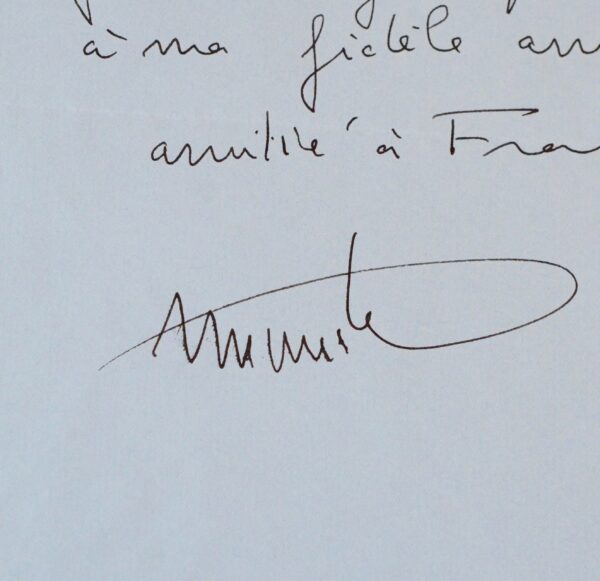 à ma fidèle am
amitié à Fran